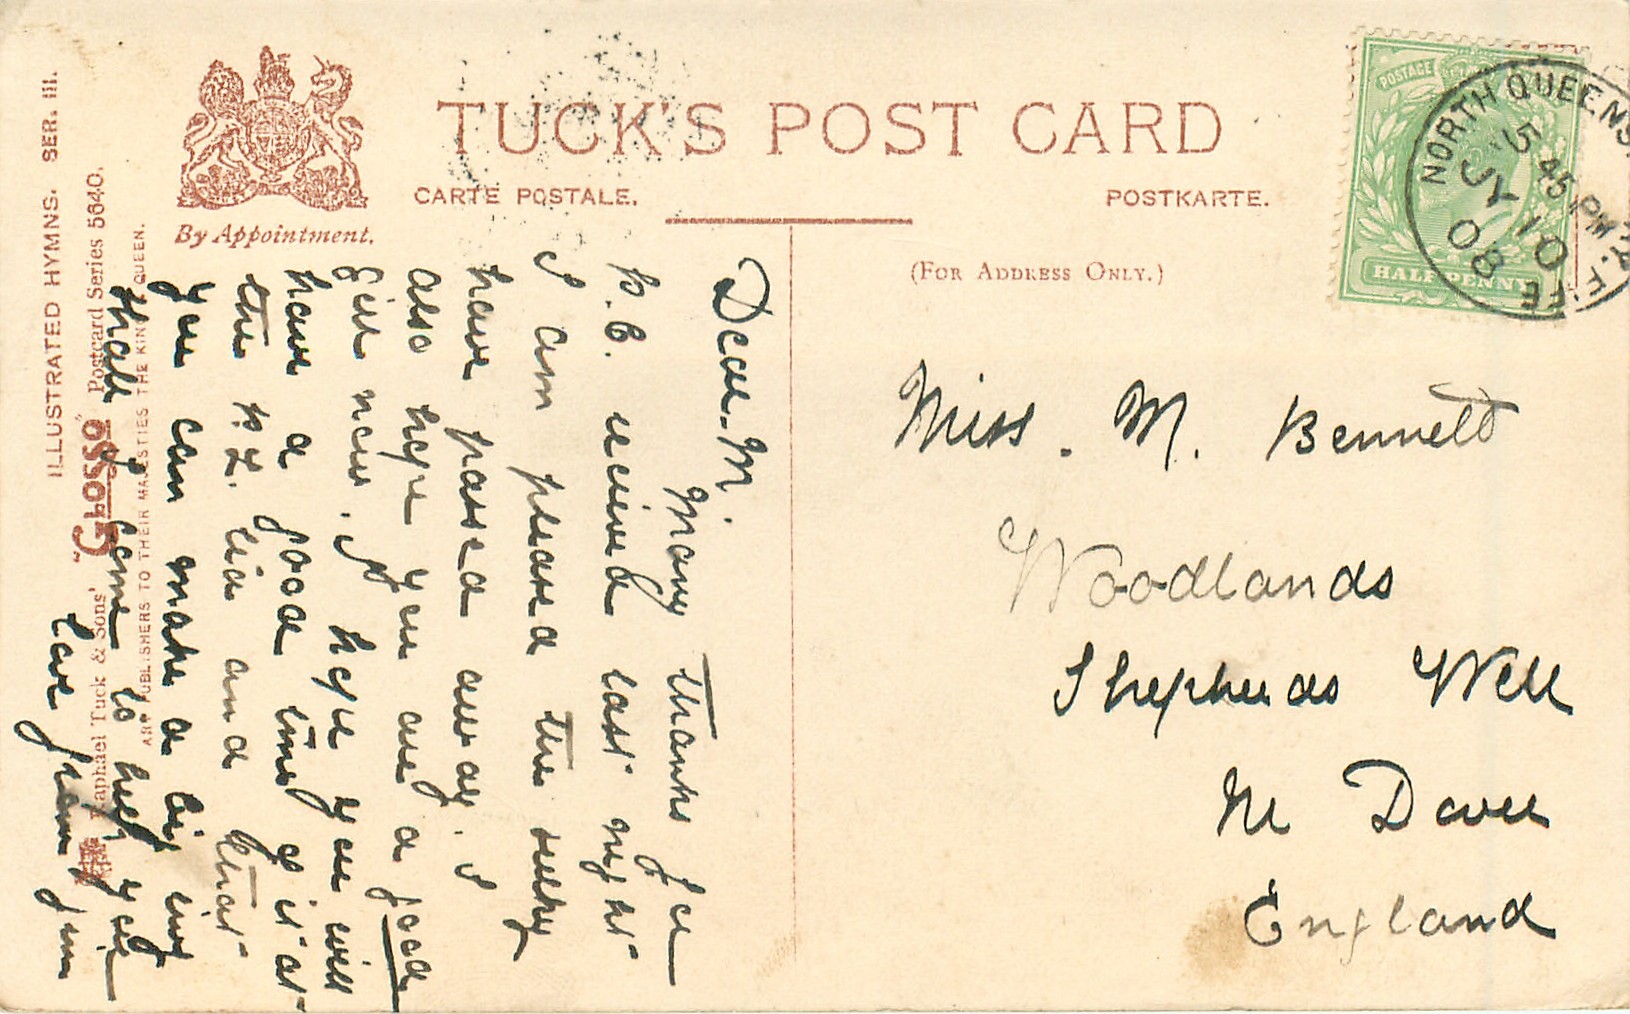 TUCK'S POST CARD
CARTE POSTALE.
POSTKARTE.
By Appointment.
(FOR ADDRESS ONLY.)
POSTAGE
HALFPENNY
NORTH QUEENS
FIFE
5 45 PM
JY 10
08
ILLUSTRATED HYMNS. SER. III.
Raphael Tuck & Sons' "GLOSSO" Postcard Series 5640.
ART PUBLISHERS TO THEIR MAJESTIES THE KING QUEEN.
Dear M.
Many thanks for
P.C. received last night
I am pleased the
have passed away. I
also hope you are a good
Girl now. I hope you will
have a good time of it at
the and that
you can make a big
shall I come to help you
love from Jim
Miss. M. Bennett
Woodlands
Shepherds Well
Nr Dover
England